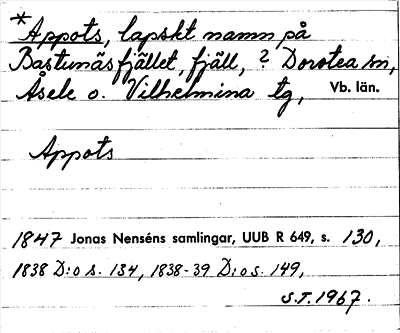 *
Appots, lapskt namn på
Bastunäsfjället, fjäll, ? Dorotea sn,
Åsele o. Vilhelmina tg, Vb. län.
Appots
1847 Jonas Nenséns samlingar, UUB R 649, s. 130,
1838 D:o s. 134, 1838-39 D:o s. 149,
S.T. 1967.